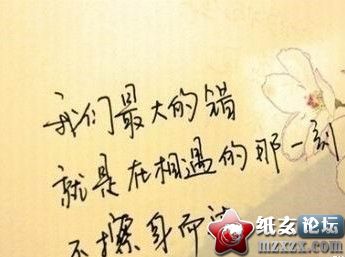 我们最大的错
就是在相遇的那一刻
不擦身而
纸玄论坛
mzxzx.com